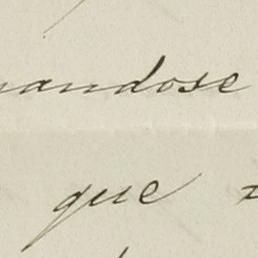 andose
que